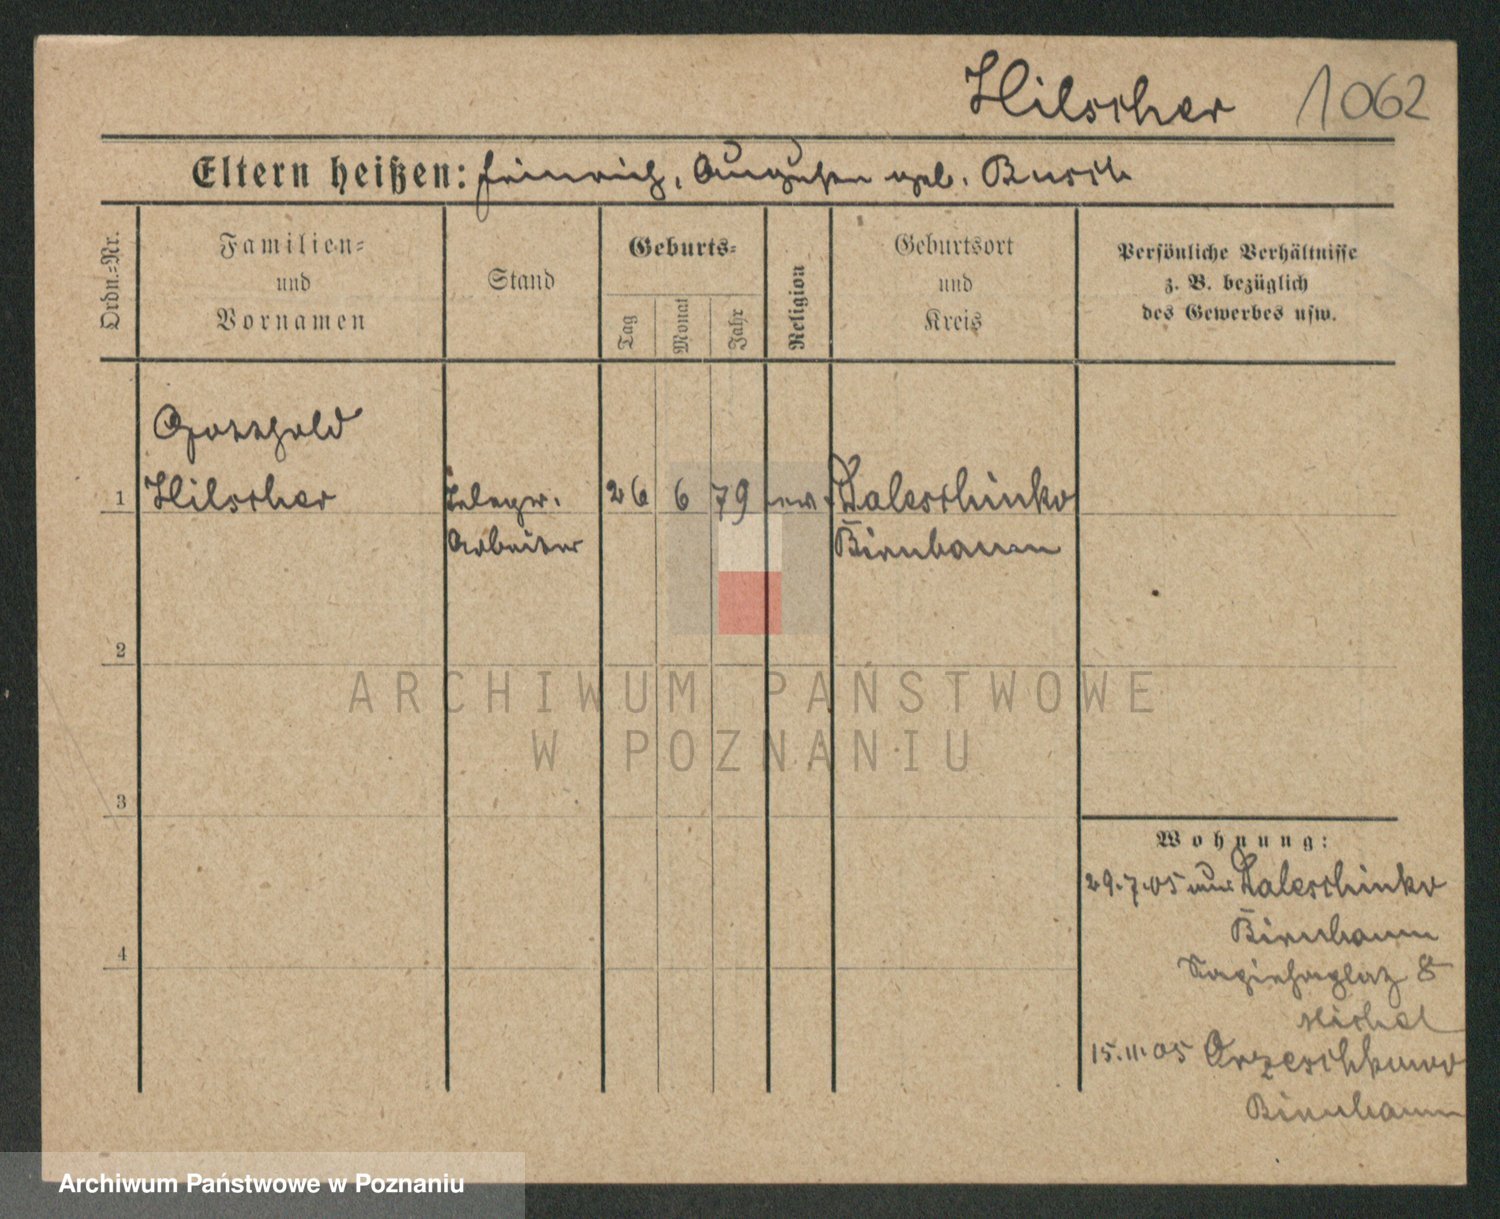 Hilscher 1062
Eltern heißen: Heinrich, Auguste geb. Busch
Ordn.=Nr.
Familien=
und
Vornamen
Stand
Geburts=
Tag
Monat
Jahr
Religion
Geburtsort
und
Kreis
Persönliche Verhältnisse
z. B. bezüglich
des Gewerbes usw.
Gotthold
1 Hilscher Telegr. 26 6 79 ev. Zaleschinko
Arbeiter Birnbaum
2
3
4
ARCHIWUM PAŃSTWOWE
W POZNANIU
Wohnung:
29.7.05 aus Zaleschinko
Birnbaum
8
Michel
15.11.05
Birnbaum
Archiwum Państwowe w Poznaniu